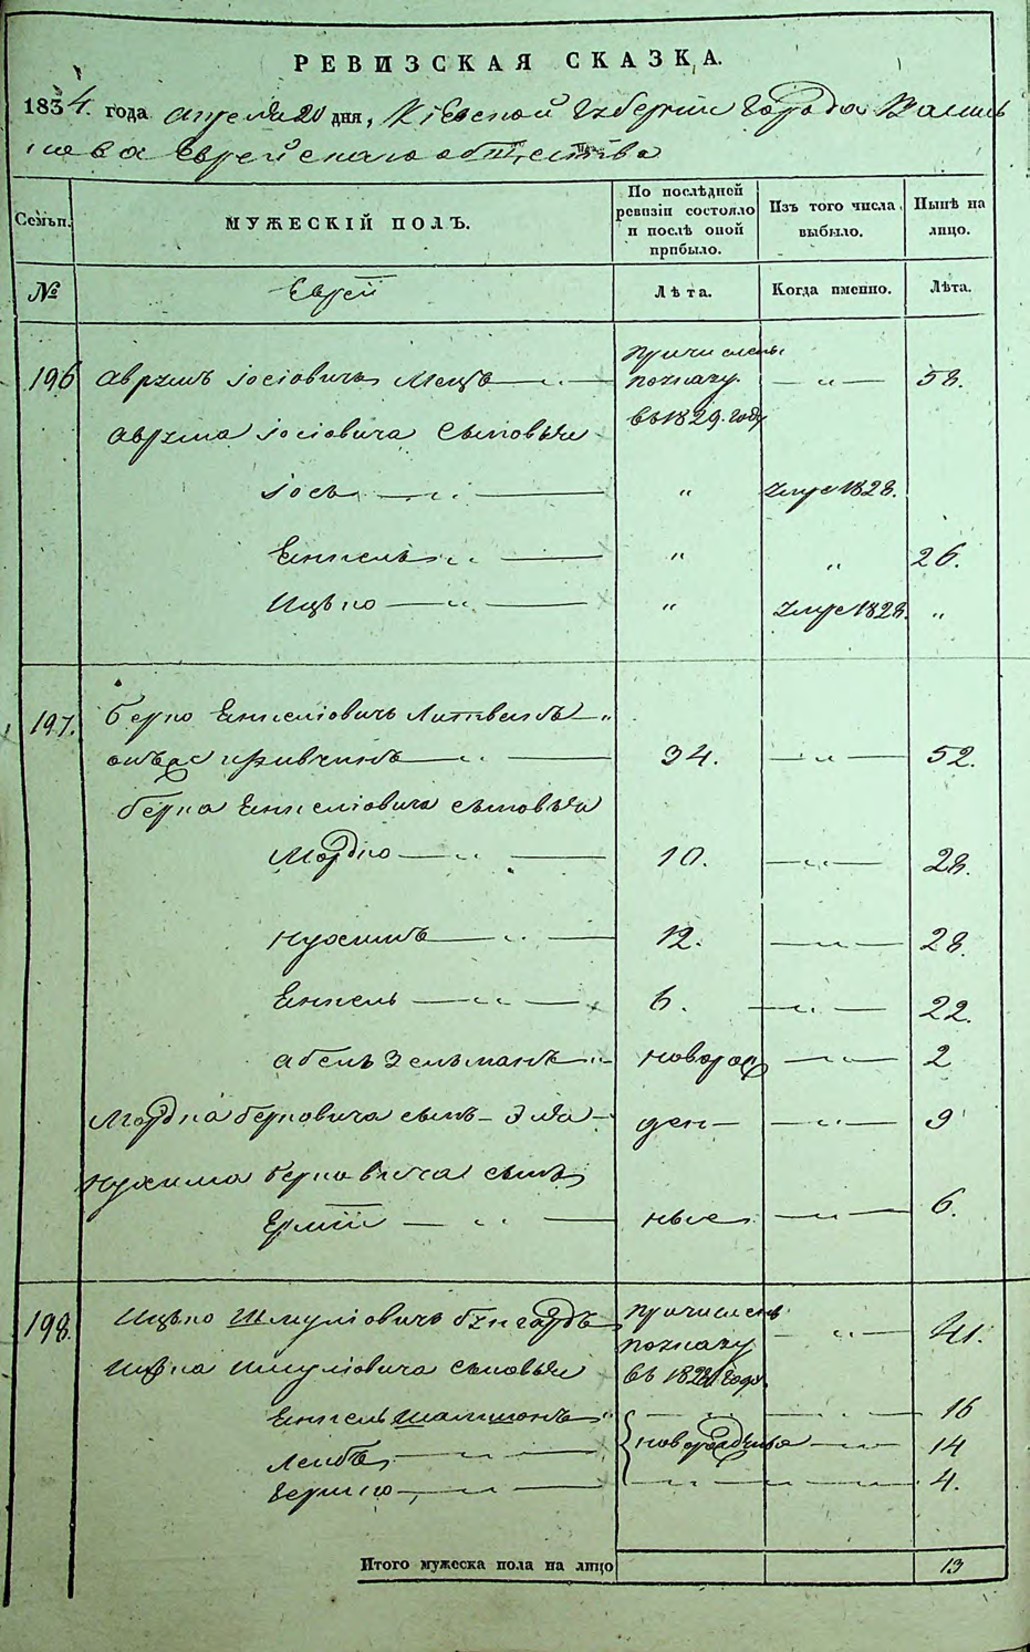 РЕВИЗСКАЯ СКАЗКА.
1834. года апреля 20 дня, Кіевской губерніи города Василь
кова Еврейскаго общества
Семьи.
МУЖЕСКІЙ ПОЛЪ.
По послѣдней ревизіи состояло и послѣ оной прибыло.
Изъ того числа выбыло.
Нынѣ на лицо.
№
Еврей
Лѣта.
Когда именно.
Лѣта.
причисленъ
196 Аврумъ Іосіовичъ „ по указу — „ — 58.
Аврума Іосіовича сыновья въ 1829. году
Іось — „ — „ умре 1828.
Енкель „ — „ „ 26.
Ицько — „ — „ умре 1828. „
197. Берко Енкеліовичъ Литвакъ „
онъже — „ — 34. — „ — 52.
Берка Енкеліовича сыновья
Мордко — „ — 10. — „ — 28.
Нухимъ — „ — 12. — „ — 28.
Енкель — „ — 6. — „ — 22.
Абель Зельманъ — „ новорож — „ — 2
Мордка Берковича сынъ — — ден — — „ — 9
Нухима Берковича сынъ
— „ — ные — „ — 6.
198. Ицько Шмуліовичъ причисленъ
по указу — „ — 41.
Ицка Шмуліовича сыновья въ году.
Енкель „ — „ — „ — 16
Лейбъ — „ — новорожденные — „ — 14
Гершко — „ — — „ — „ — 4.
Итого мужеска пола на лицо 13